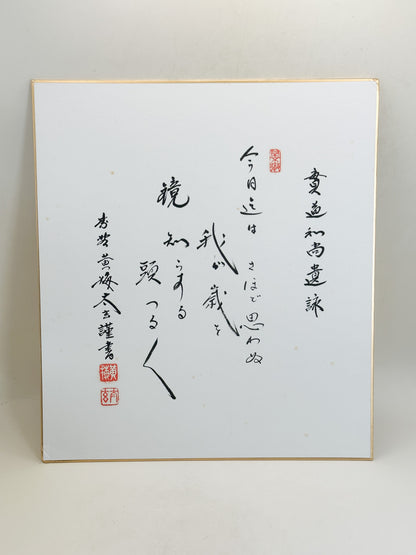 貫道和尚遺詠
今日迄は さほど思わぬ
我が歳を
鏡 知らする
頭 つる〱
黄梅太玄謹書